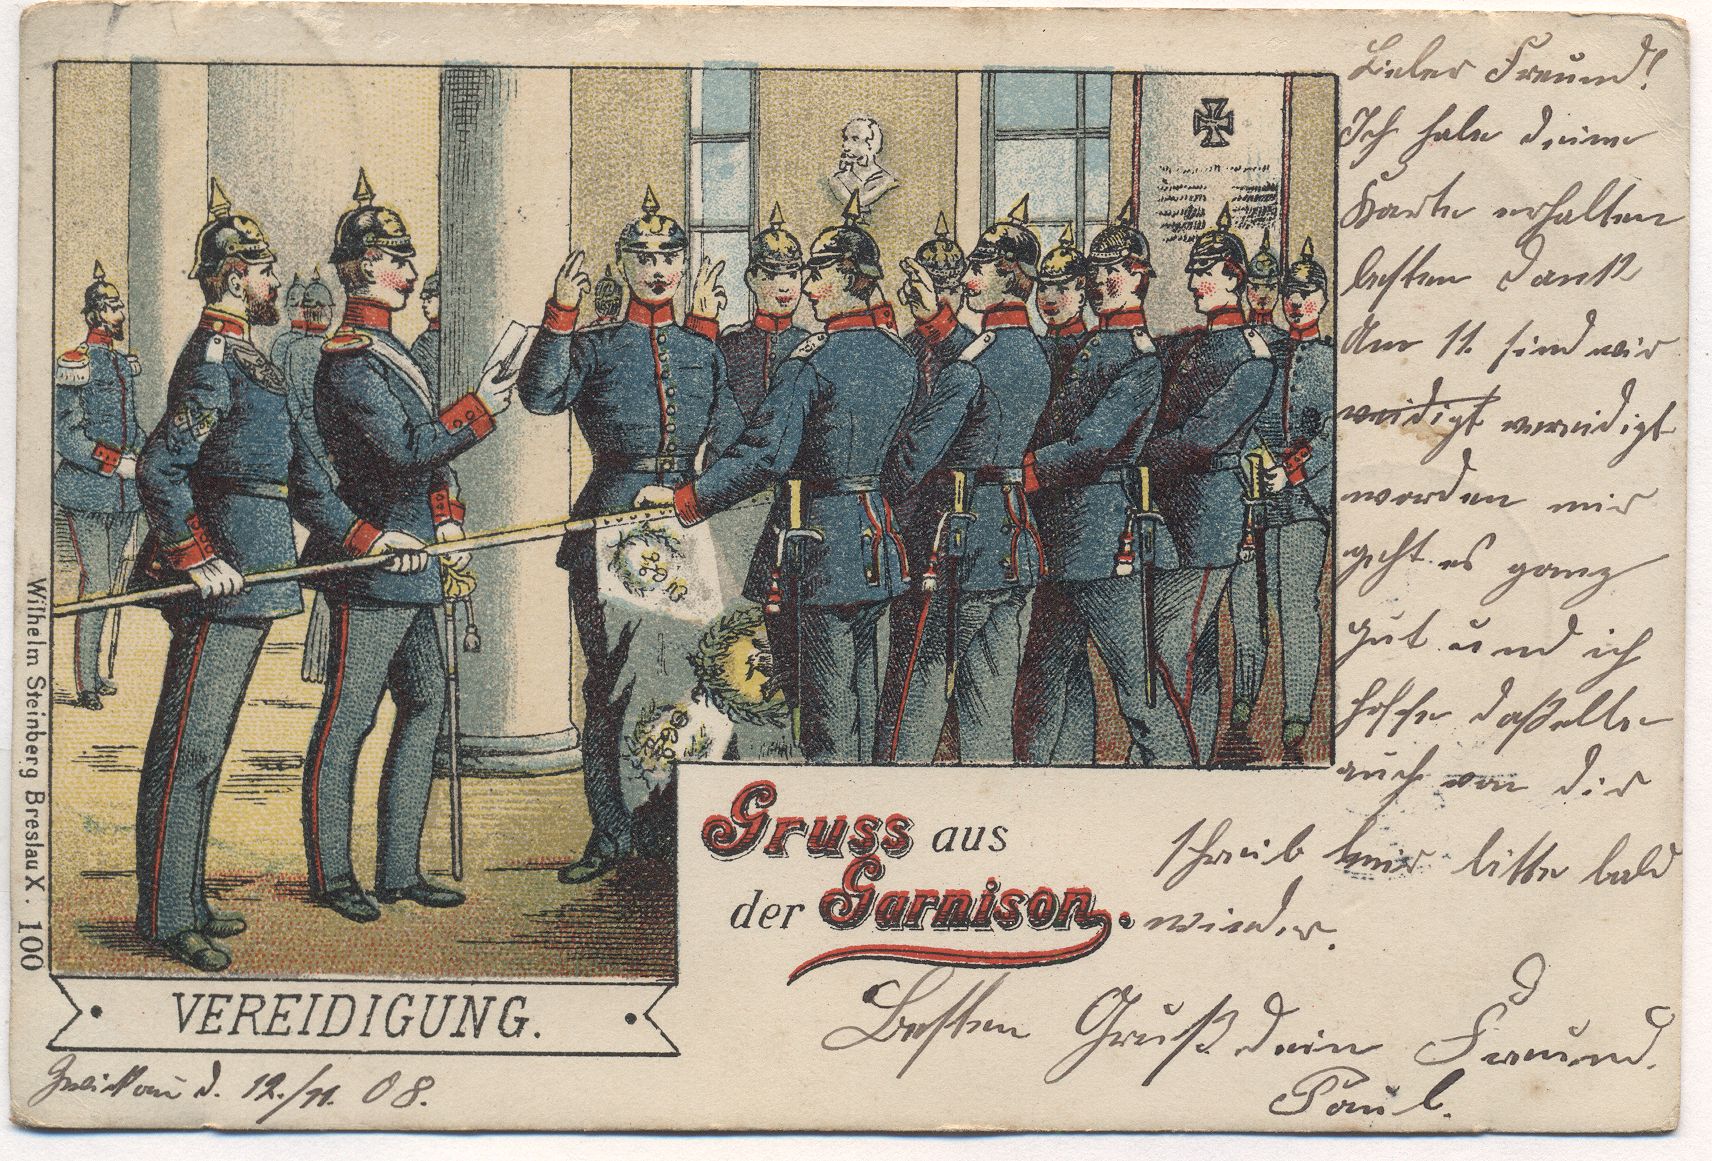 Lieber Freund!
Ich habe deine
Karte erhalten
besten Dank
Am 11. sind wir
veidigt vereidigt
worden mir
geht es ganz
gut und ich
hoffe daßelbe
auch von dir
schreib mir bitte bald
wieder.
Besten Gruß dein Freund.
Paul.
Gruss aus
der Garnison.
VEREIDIGUNG.
Zwickau d. 12./11. 08.
Wilhelm Steinberg Breslau X. 100